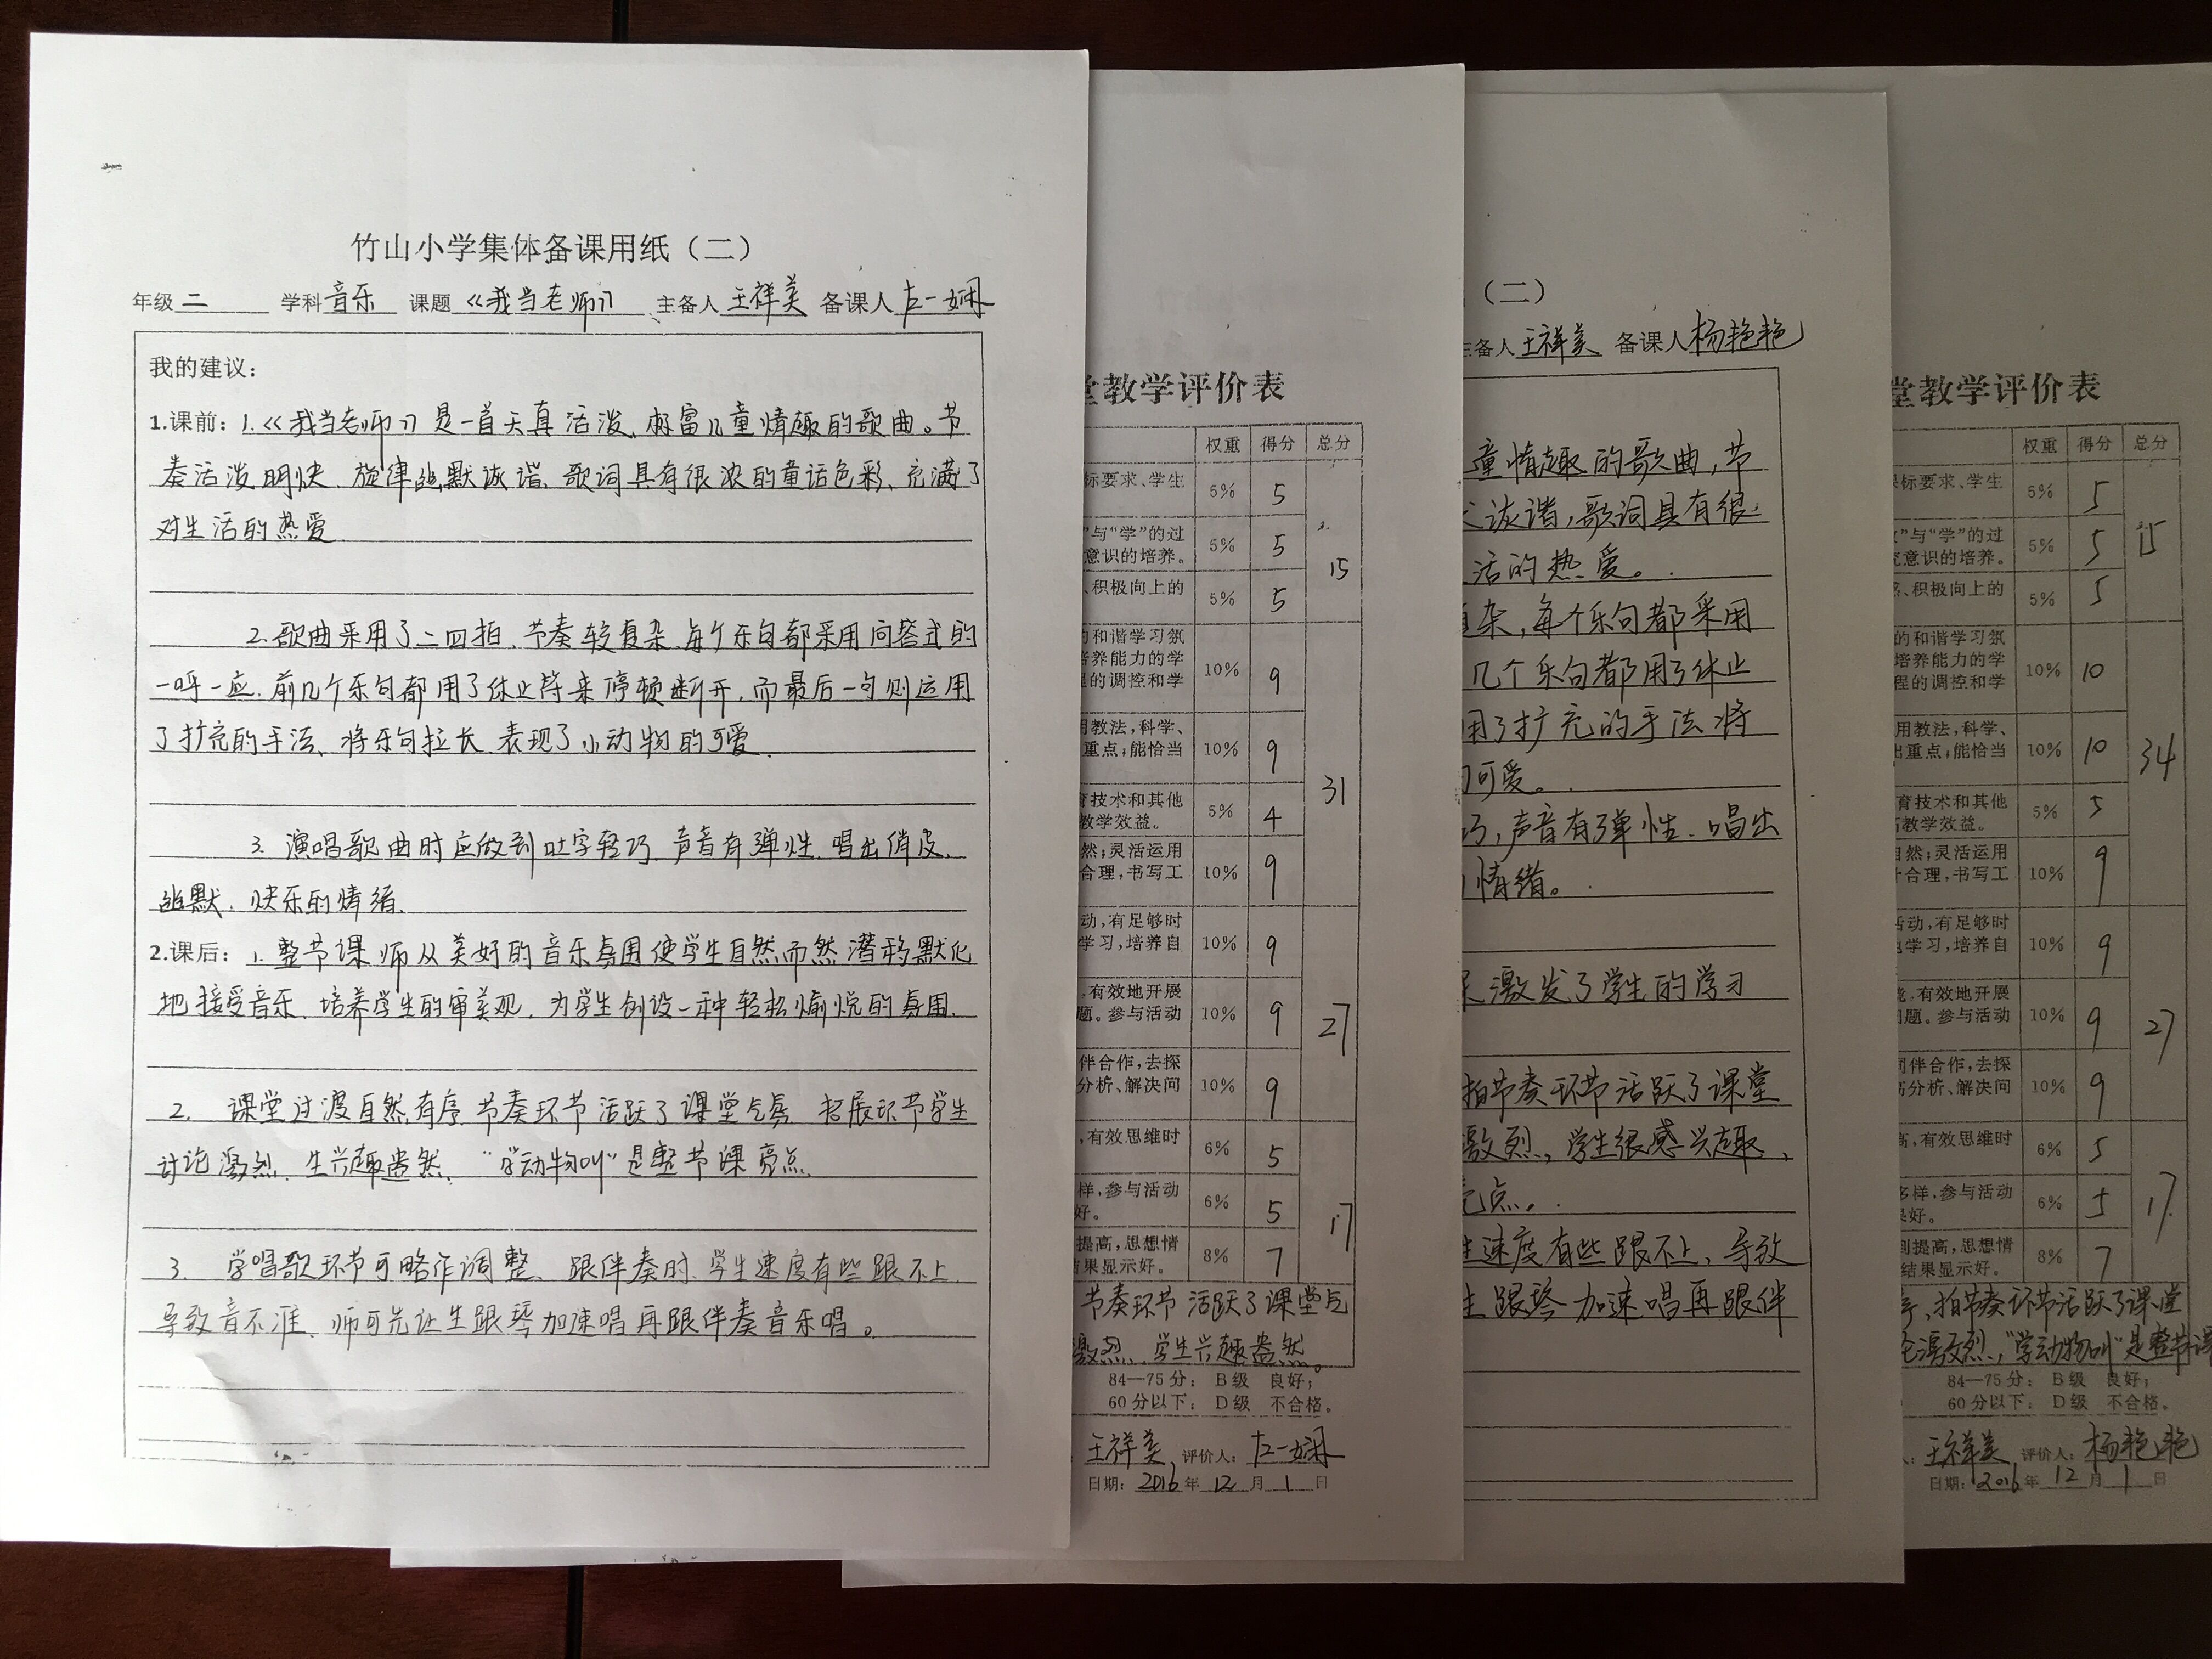 竹山小学集体备课用纸（二）
年级 二 学科 音乐 课题 《我当老师》 主备人 王祥美 备课人 左一娴
我的建议：
1.课前：1.《我当老师》是一首天真活泼、极富儿童情趣的歌曲。节
奏活泼明快、旋律幽默诙谐、歌词具有很浓的童话色彩、充满了
对生活的热爱
2.歌曲采用了二四拍、节奏较复杂、每个乐句都采用问答式的
一呼一应、前几个乐句都用了休止符来停顿断开，而最后一句则运用
了扩充的手法、将乐句拉长、表现了小动物的可爱.
3. 演唱歌曲时应做到吐字轻巧、声音有弹性、唱出俏皮、
幽默、快乐的情绪.
2.课后：1.整节课师从美好的音乐氛围使学生自然而然潜移默化
地接受音乐、培养学生的审美观、为学生创设一种轻松愉悦的氛围.
2. 课堂过渡自然有序、节奏环节活跃了课堂气氛、拓展环节学生
讨论激烈、生兴趣盎然、“学动物叫”是整节课亮点.
3. 学唱歌环节可略作调整、跟伴奏时、学生速度有些跟不上、
导致音不准、师可先让生跟琴加速唱再跟伴奏音乐唱。
堂教学评价表
权重 得分 总分
标要求、学生 5% 5
”与“学”的过
意识的培养。 5% 5 15
、积极向上的 5% 5
的和谐学习氛
培养能力的学
程的调控和学 10% 9
用教法，科学、
重点；能恰当 10% 9 31
育技术和其他
教学效益。 5% 4
然；灵活运用
合理，书写工 10% 9
动，有足够时
学习，培养自 10% 9
，有效地开展
题。参与活动 10% 9 27
伴合作，去探
分析、解决问 10% 9
，有效思维时 6% 5
样，参与活动
好。 6% 5 17
提高，思想情
果显示好。 8% 7
节奏环节活跃了课堂气
激烈、学生兴趣盎然。
84—75分： B级 良好；
60分以下： D级 不合格。
王祥美 评价人： 左一娴
日期：2016年12月1日
（二）
主备人 王祥美 备课人 杨艳艳
童情趣的歌曲，节
诙谐，歌词具有很
活的热爱。
杂，每个乐句都采用
几个乐句都用了休止
用了扩充的手法将
可爱。
巧，声音有弹性、唱出
情绪。
激发了学生的学习
拍节奏环节活跃了课堂
激烈，学生很感兴趣、
亮点。
生速度有些跟不上、导致
生跟琴加速唱再跟伴
堂教学评价表
权重 得分 总分
课标要求、学生 5% 5
”与“学”的过
究意识的培养。 5% 5 15
、积极向上的 5% 5
的和谐学习氛
培养能力的学
程的调控和学 10% 10
用教法，科学、
出重点；能恰当 10% 10 34
育技术和其他
高教学效益。 5% 5
自然；灵活运用
计合理，书写工 10% 9
活动，有足够时
地学习，培养自 10% 9
，有效地开展
问题。参与活动 10% 9 27
同伴合作，去探
高分析、解决问 10% 9
高，有效思维时 6% 5
多样，参与活动
果好。 6% 5 17
到提高，思想情
结果显示好。 8% 7
，拍节奏环节活跃了课堂
论激烈，“学动物叫”是整节课
84—75分： B级 良好；
60分以下： D级 不合格。
王祥美 评价人： 杨艳艳
日期：2016年12月1日